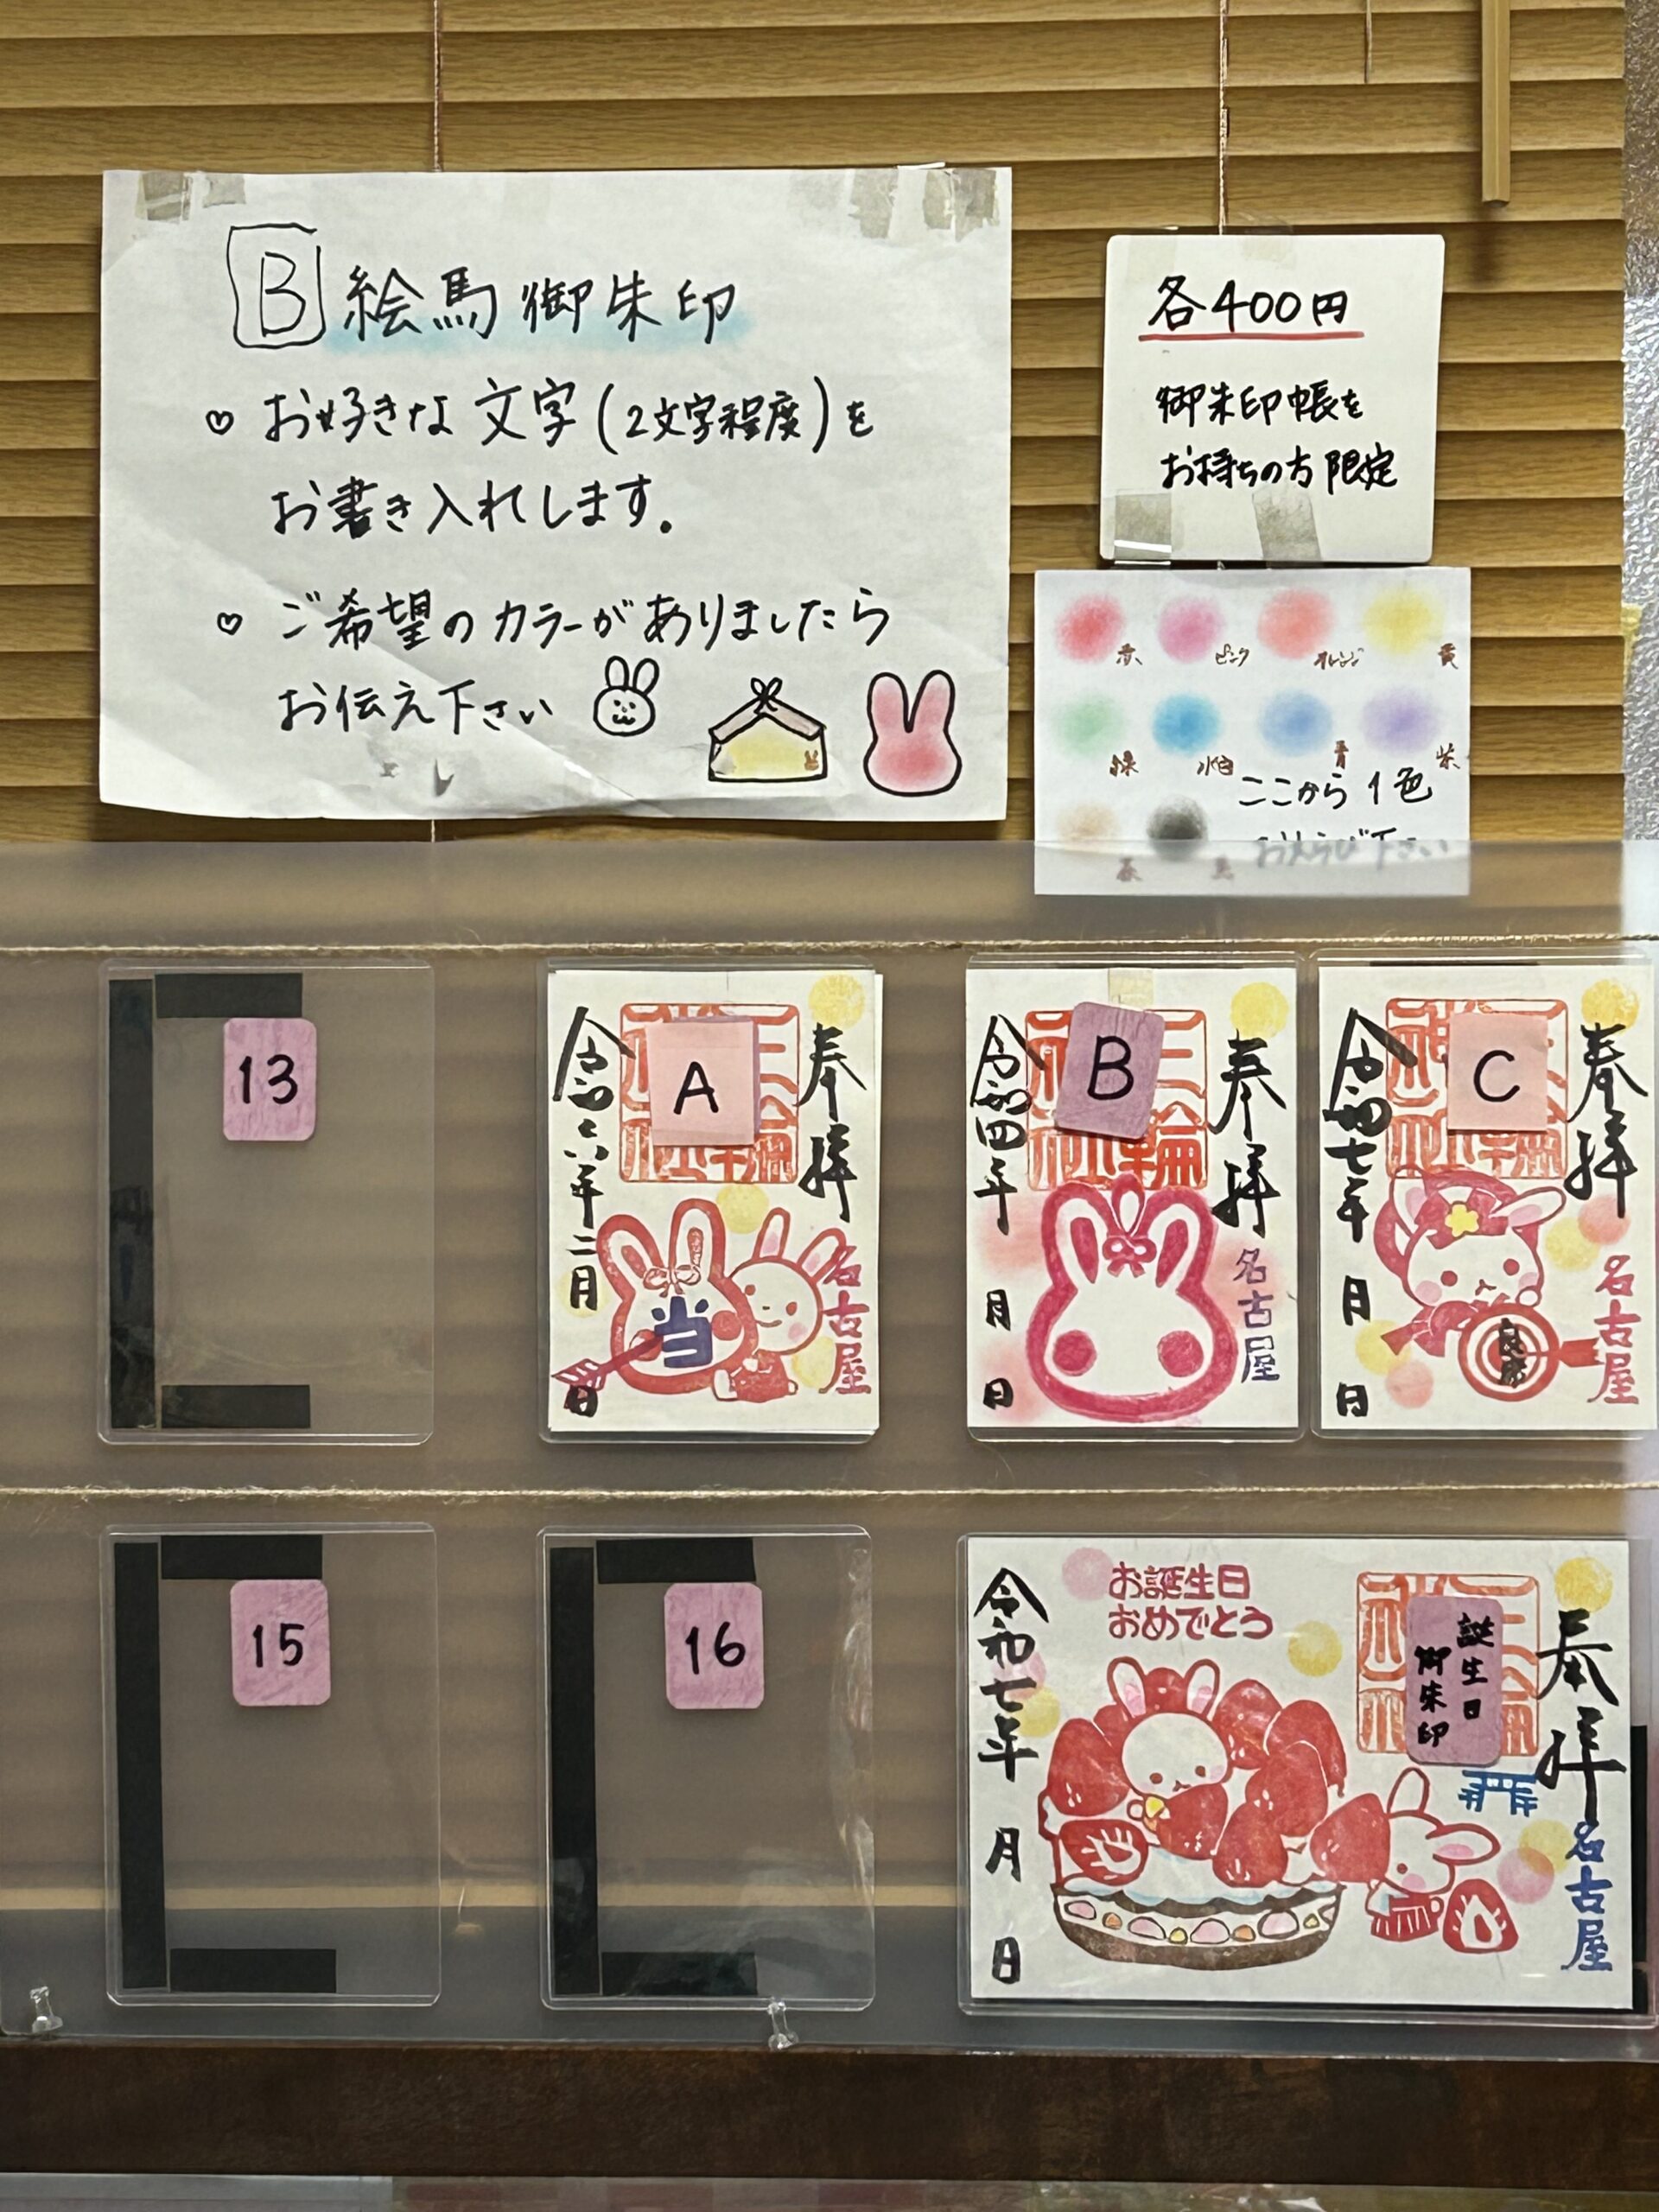 B 絵馬御朱印
♡ お好きな文字(2文字程度)を
お書き入れします。
♡ ご希望のカラーがありましたら
お伝え下さい
各400円
御朱印帳を
お持ちの方限定
赤 ピンク オレンジ 黄
緑 水色 青 紫
ここから1色
おえらび下さい
茶 黒
13
A
奉拝
令和六年二月
日
当
名古屋
B
奉拝
三輪
令和四年
月
日
名古屋
C
奉拝
令和七年
月
日
名古屋
15
16
お誕生日
おめでとう
誕生日
御朱印
奉拝
令和七年
月
日
名古屋